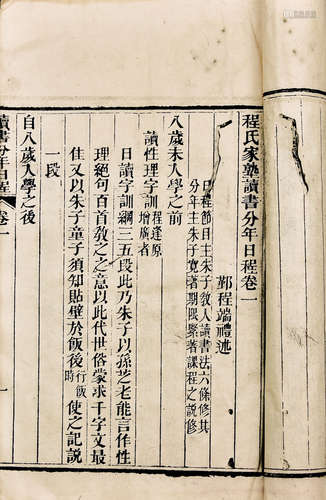 程氏家塾讀書分年日程卷一
鄞程端禮述
日程節目主朱子敎人讀書法六條修其
分年主朱子寬著期限緊著課程之說修
八歲未入學之前
讀性理字訓程逢原增廣者
日讀字訓綱三五段此乃朱子以孫芝老能言作性
理絕句百首敎之之意以此代世俗蒙求千字文最
佳又以朱子童子須知貼壁於飯後行飯時使之記說
一段
自八歲入學之後
讀書分年日程 卷一
一